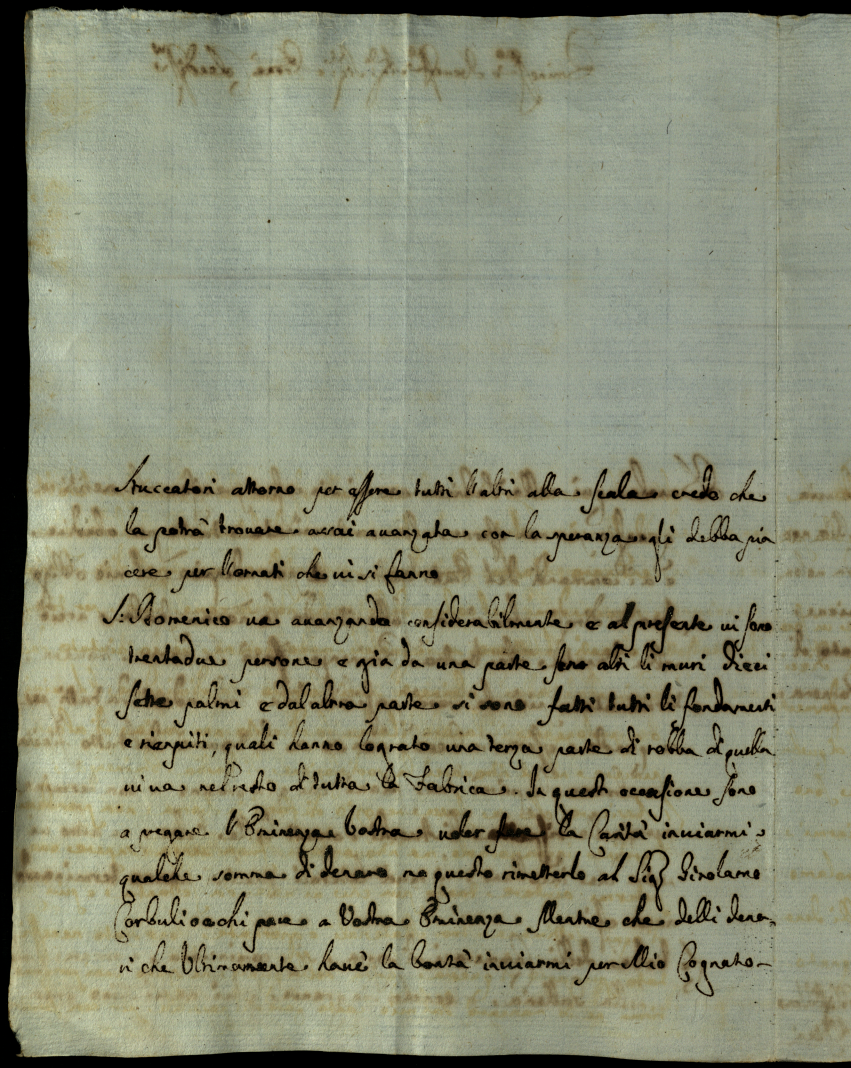 Stuccatori attorno per essere tutti l'altri alla scala credo che
la potrà trovare assai avanzata con la speranza gli debba pia
cere per l'ornati che vi si fanno
S: Domenico va avanzando considerabilmente e al presente vi sono
trentadue persone e gia da una parte sono alti li muri dieci
sette palmi e dal altra parte si sono fatti tutti li fondamenti
e riempiti, quali hanno lograto una terza parte di robba di quella
vi va nel resto di tutta la Fabrica. In questi occasione sono
a pregare l'Eminenza Vostra voler la Carità inviarmi
qualche somma di denaro ma questo rimetterlo al Sig Girolamo
Corbuli o a chi pare a Vostra Eminenza Mentre che delli dena-
ri che Ultimamente havè la bontà inviarmi per Mio Cognato